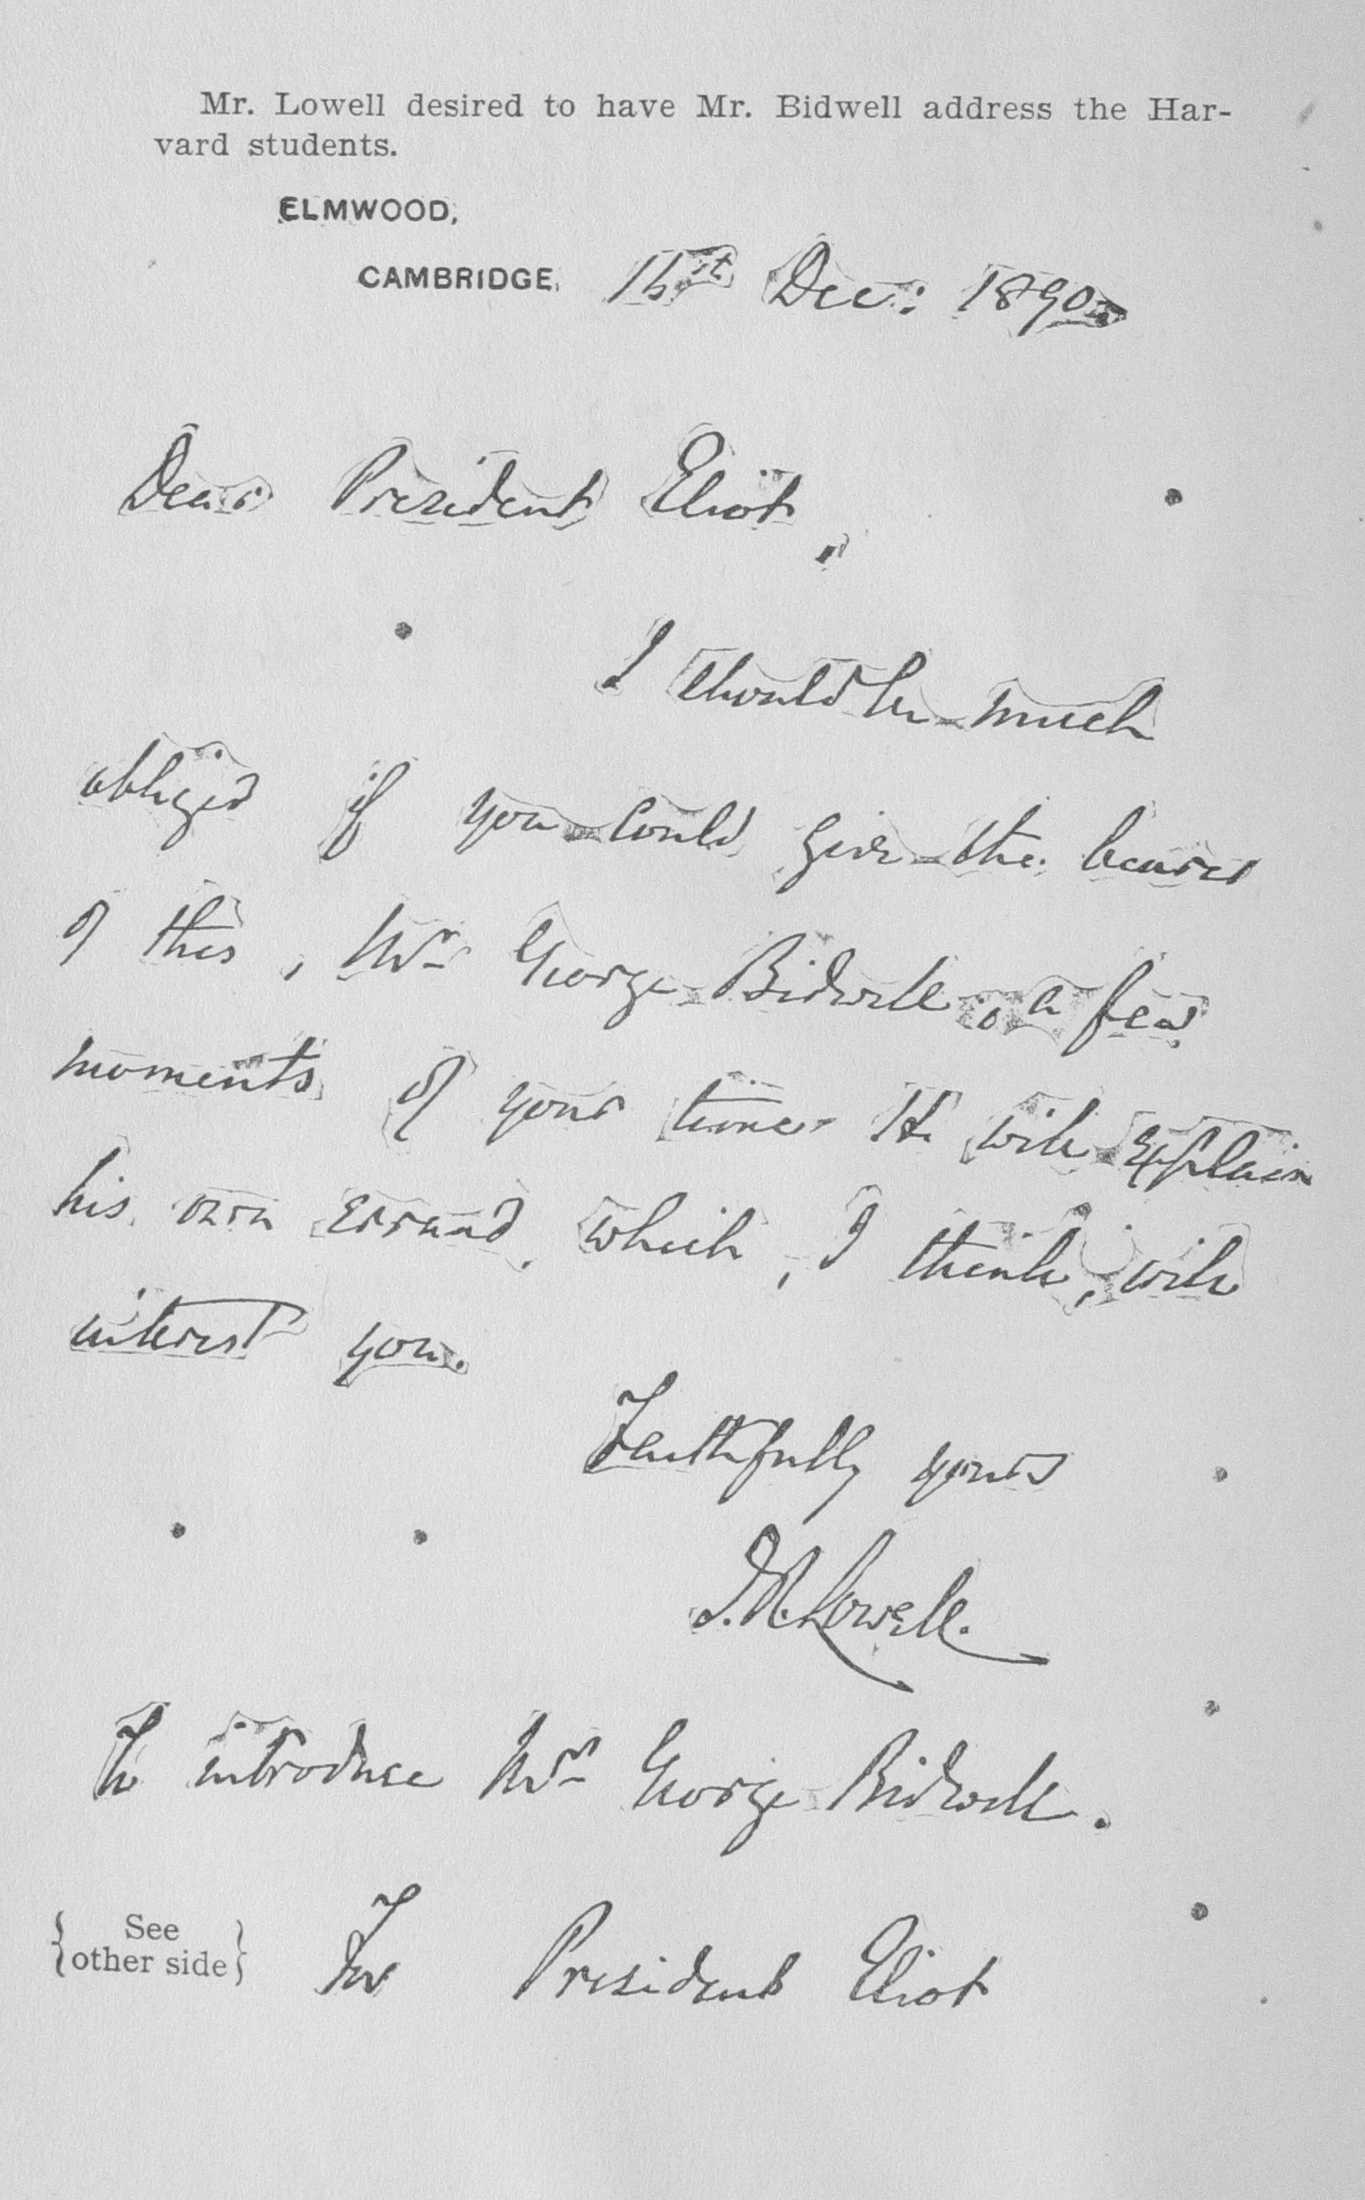 Mr. Lowell desired to have Mr. Bidwell address the Har-
vard students.
ELMWOOD,
CAMBRIDGE, Dec: 1890.
Dear President Eliot,
I should be much
obliged if you could give the bearer
of this, Mr George Bidwell, a few
moments of your time. He will explain
his own errand, which, I think, will
interest you.
Faithfully yours
J. R. Lowell.
To introduce Mr George Bidwell.
{See
other side} For President Eliot